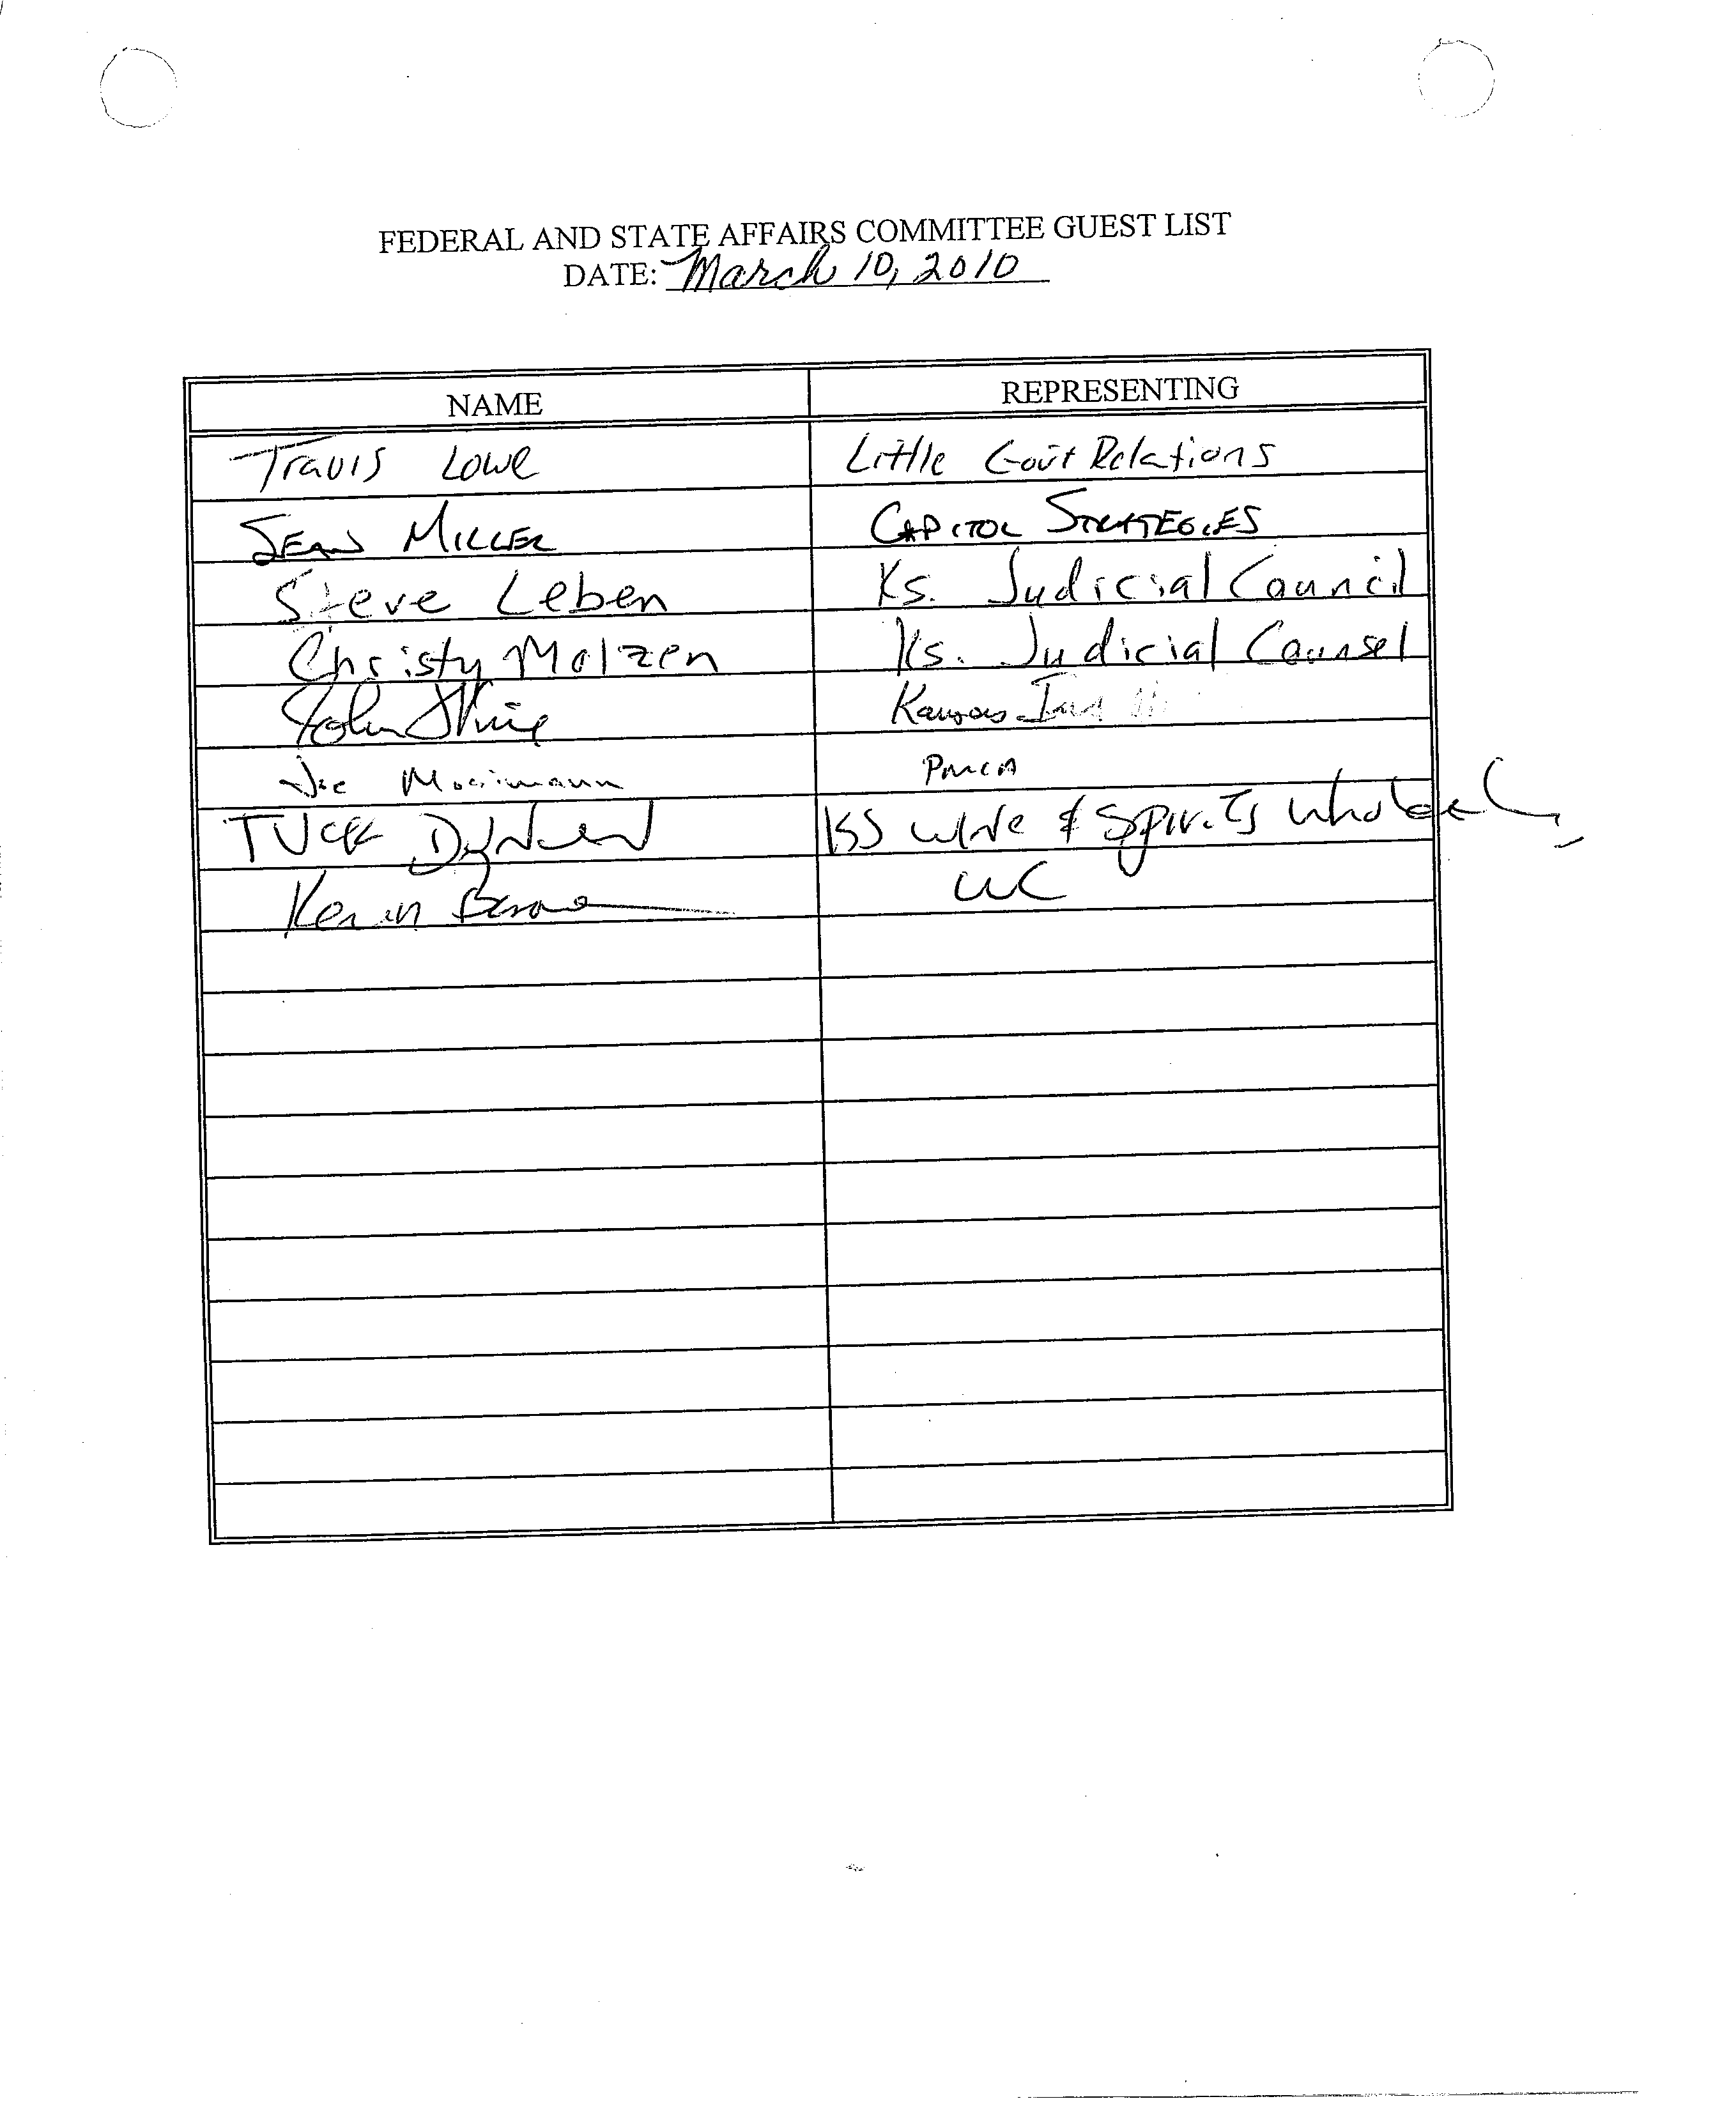 FEDERAL AND STATE AFFAIRS COMMITTEE GUEST LIST
DATE: March 10, 2010
NAME REPRESENTING
Travis Lowe Little Gov't Relations
SEAN MILLER CAPITOL STRATEGIES
Steve Leben Ks. Judicial Council
Christy Molzen Ks. Judicial Counsel
John Kansas
Joe PMCA
TUCK KS Wine & Spirits
Kevin